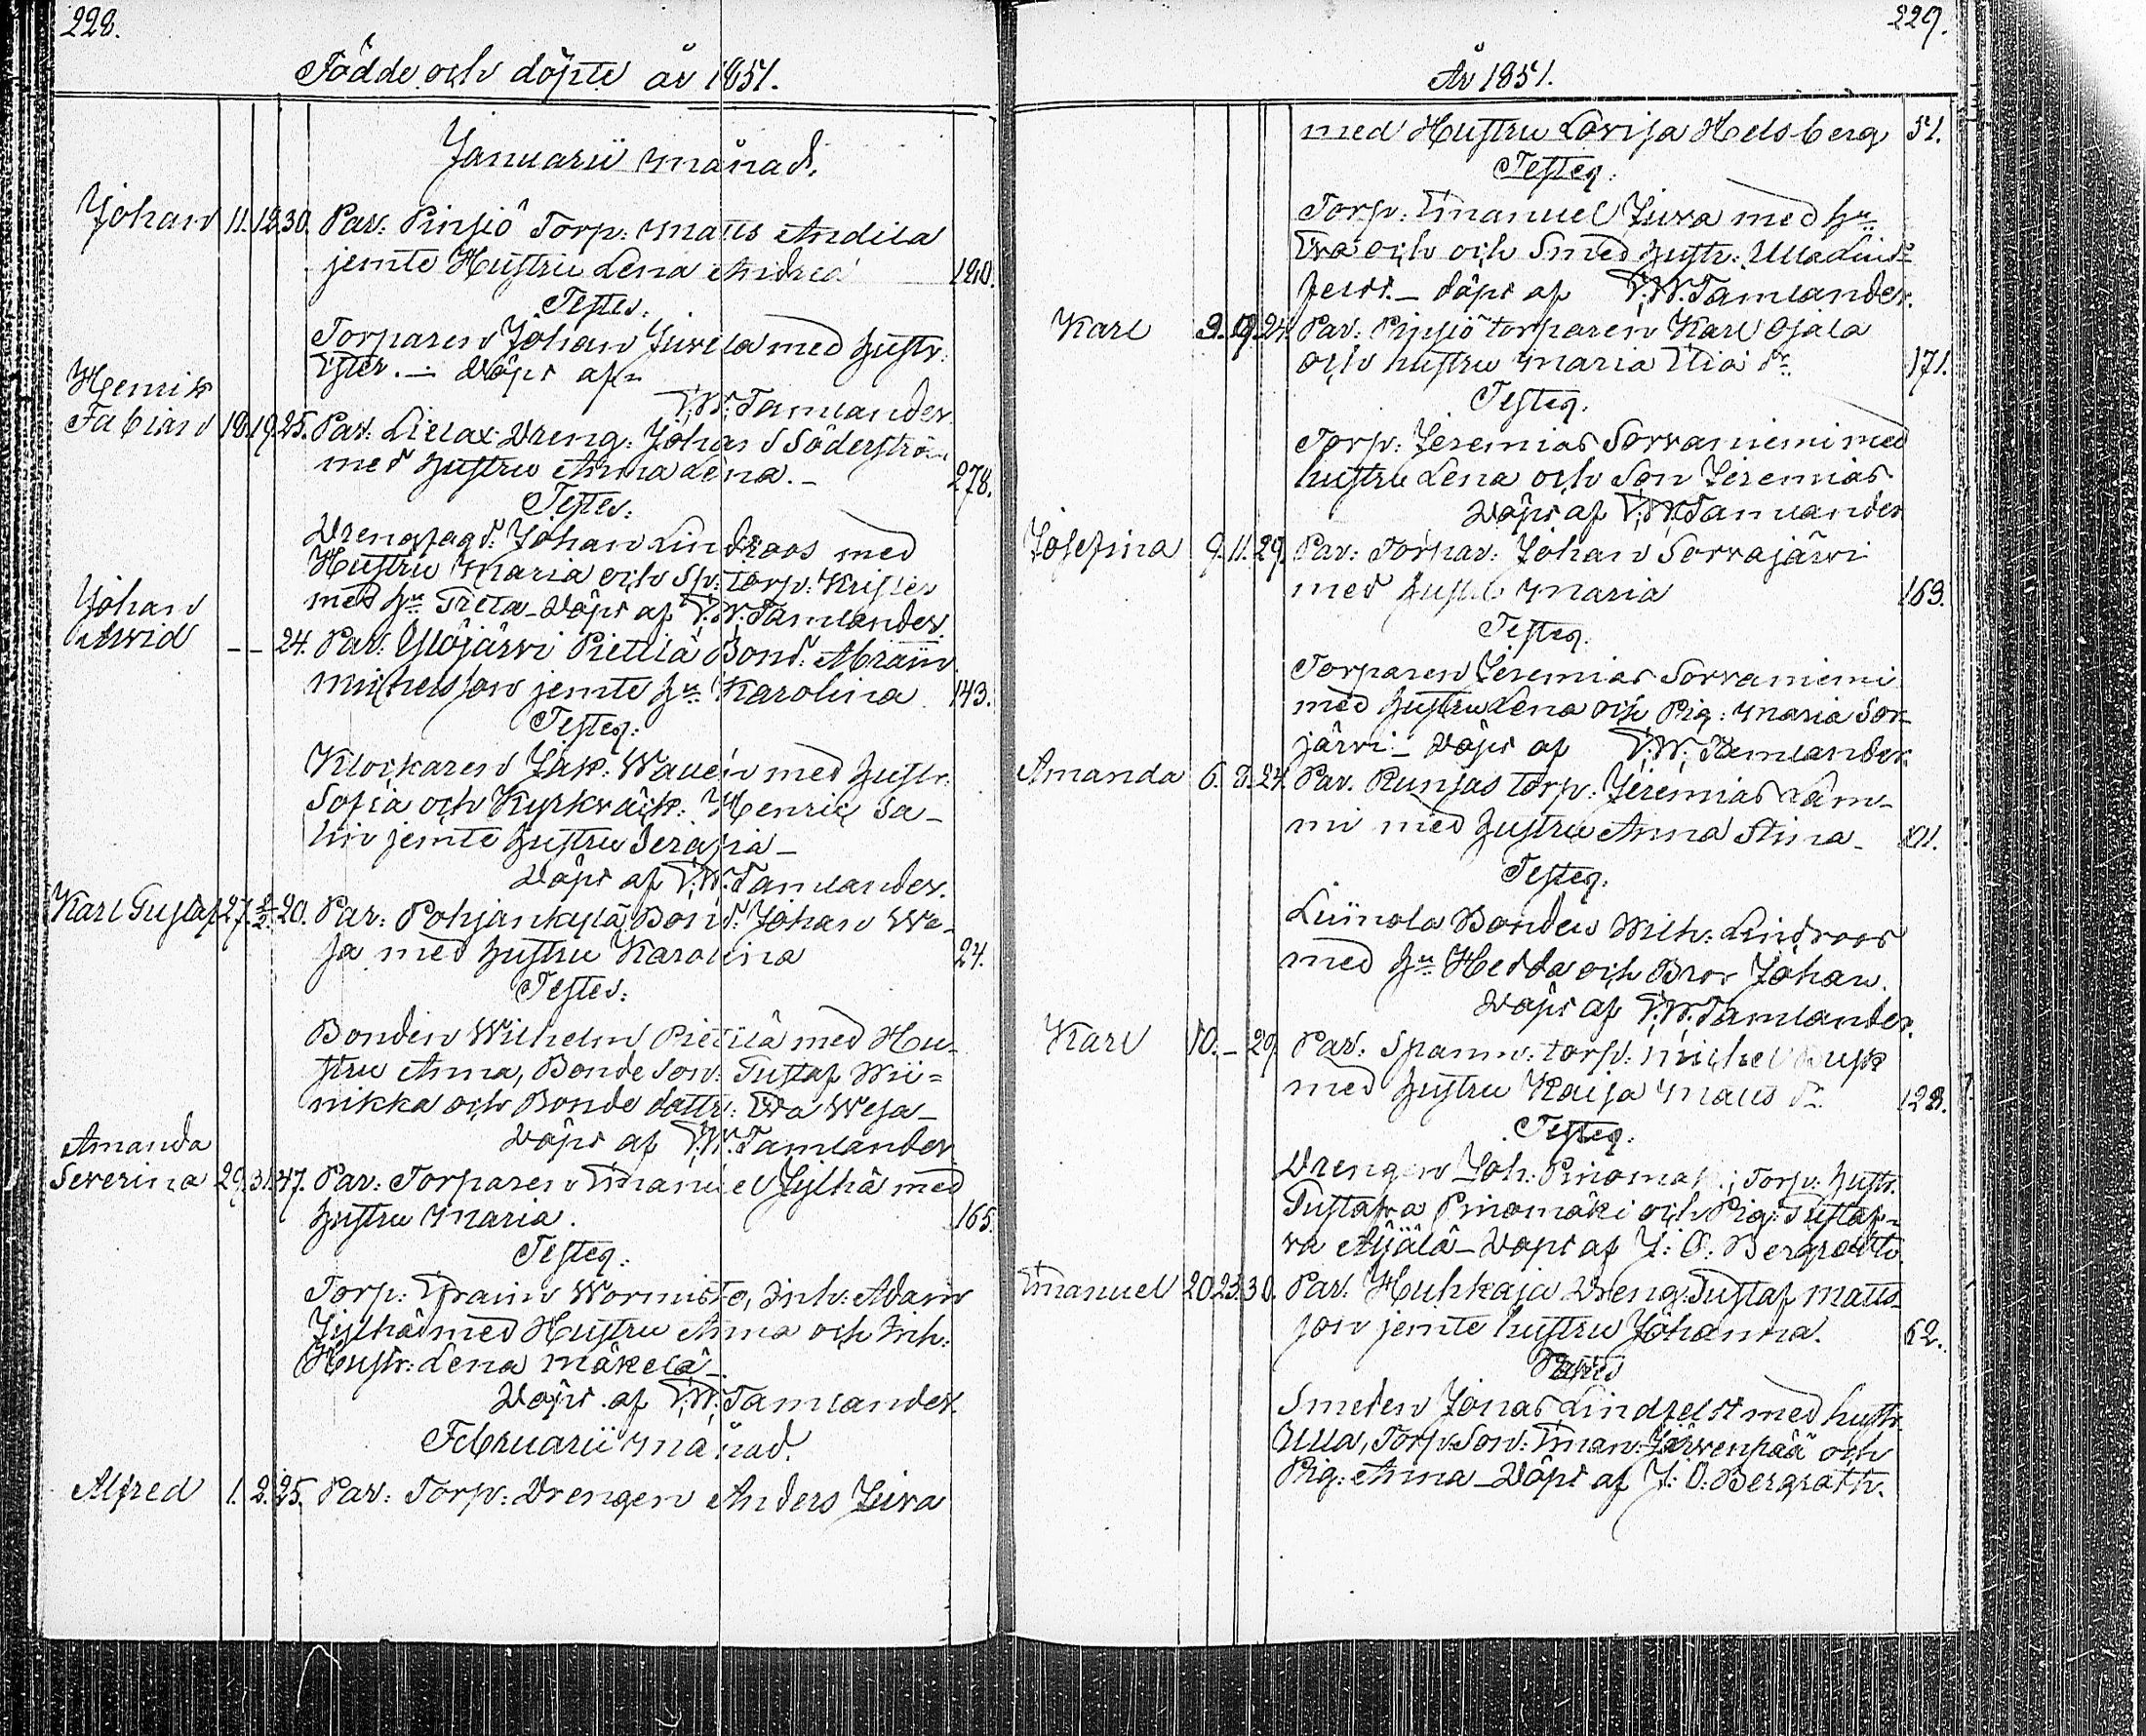 228.
Födde och döpte år 1851.
Januarii månad.
Johan 11. 12. 30. Par: Pinsiö Torp: Matts Andila
jemte Hustru Lena Andred 120.
Testes:
Torparen Johan Juvela med hustr:
Ester. — Döpt af
F: W: Tamlander
Henrik
Fabian 18. 19. 25. Par: Lielax Dreng: Johan Söderström
med hustru Anna Lena. — 278.
Testes:
Drengfogd: Johan Lindroos med
Hustru Maria och Sp: Torp: Krister
med hu Greta — Döpt af F: W: Tamlander.
Johan
Arvid — — 24. Par: Ylöjärvi Pietilä Bond: Abram
Michelsson jemte hu: Karolina 143.
Testes:
Klockaren Jak: Wallen med hustr:
Sofia och Kyrkväk: Henric Sa-
lin jemte hustru Serafia —
Döpt af F: W: Tamlander.
Karl Gustaf 27. 2/2. 20. Par: Pohjankylä Bond: Johan We-
sa med hustru Karolina 24.
Testes:
Bonden Wilhelm Pietilä med Hu-
stru Anna, Bonde Son: Gustaf Wii=
nikka och Bonde dottr: Eva Wesa —
Döpt af F: W: Tamlander
Amanda
Severina 29. 31. 47. Par: Torparen Emanuel Jylhä med
hustru Maria. 165.
Testes:
Torp: Efraim Wormisto, Inh: Adam
Jylhä med Hustru Anna och Inh:
Hustr: Lena Mäkelä —
Döpt af F: W: Tamlander.
Februarii månad.
Alfred 1. 2. 25. Par: Torp: Drengen Anders Juva
229.
År 1851.
med Hustru Lovisa Helsberg 51.
Testes:
Torp: Emanuel Juva med hu
Eva och och Smed hustr: Ulla Lind-
felt. — döpt af F: W: Tamlander.
Karl 3. 19. 24. Par: Pinsiö torparen Karl Ojala
och hustru Maria Elia dr 171.
Testes.
Torp: Jeremias Sorraniemi med
hustru Lena och Son Jeremias
Döpt af F: W: Tamlander
Josefina 9. 11. 29. Par: Torpar: Johan Sorrajärvi
med hustru Maria 169.
Testes.
Torparen Jeremias Sorraniemi
med hustru Lena och Pig: Maria Sor-
järvi — Döpt af F: W: Tamlander
Amanda 6. 9. 24. Par. Runsas torp: Jeremias Lam-
mi med hustru Anna Stina — 101.
Testes:
Liinola Bonden Wilh: Lindroos
med hu: Hedda och Bror Johan.
Döpt af F: W: Tamlander.
Karl 10. — 29. Par: Spann: torp: Michel
med hustru Kaisa Matts dr 128.
Testes:
Drengen Joh: Pinomäki, Torp: hustr.
Gustafva Pinomäki och Pig: Gustaf-
va Äijälä — Döpt af J: O: Bergroth.
Emanuel 20. 23. 30. Par: Huhkaja Dreng: Gustaf Matts-
son jemte hustru Johanna. 62.
Testes
Smeden Jonas Lindfelt med hustr.
Ulla, Torp Son: Eman: Järvenpää och
Pig: Anna — Döpt af J: O: Bergroth.